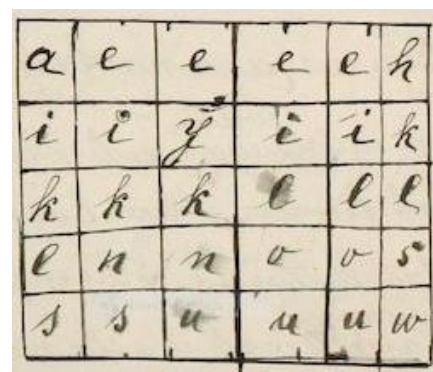 a e e e e h
i i y i i k
k k k l l l
l n n o o s
s s u u u w